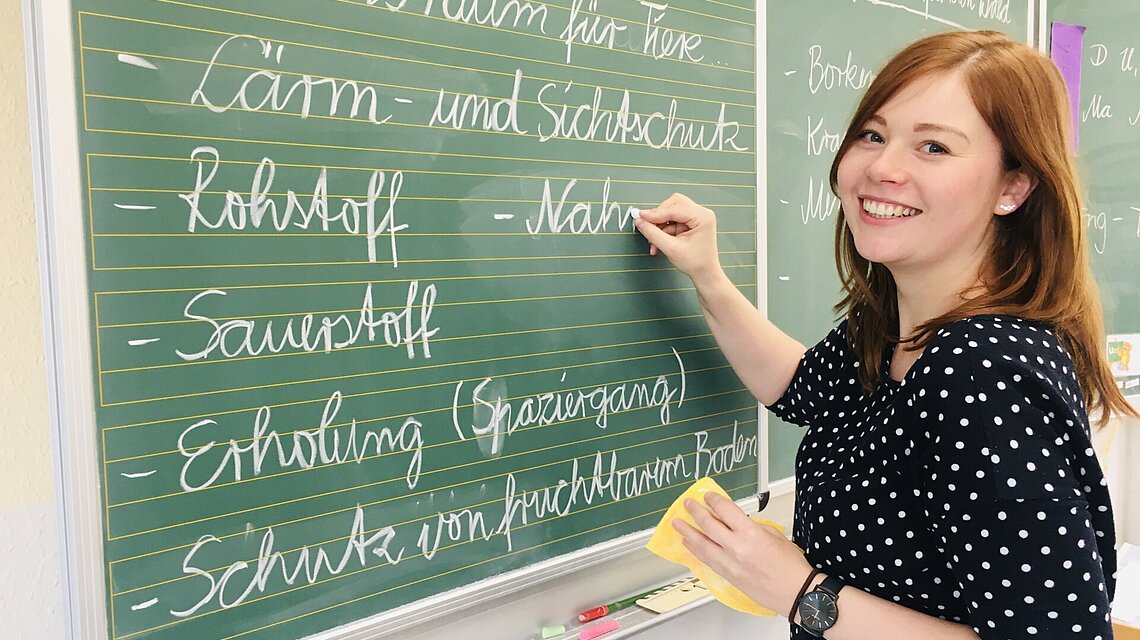 für Tiere...
- Lärm- und Sichtschutz
- Rohstoff - Nahr
- Sauerstoff
- Erholung (Spaziergang)
- Schutz von fruchtbarem Boden
Wald
-
-
-
D U,
Ma